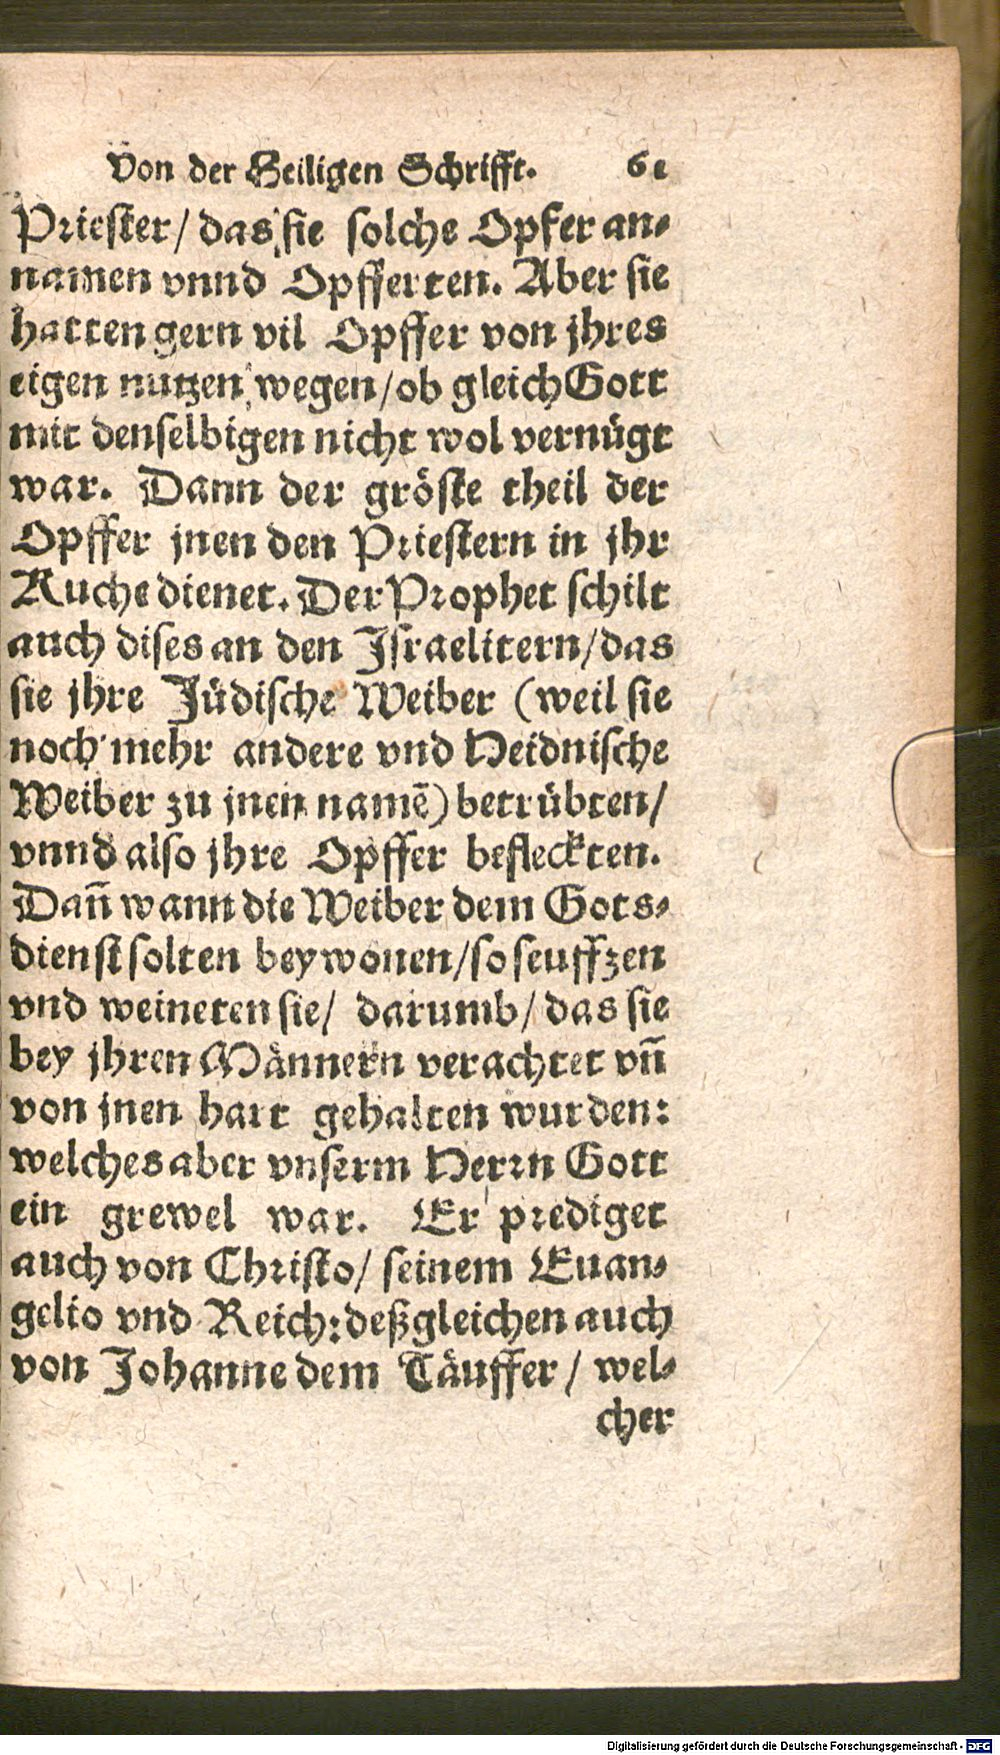 Von der Heiligen Schrifft. 61
Priester/ das sie solche Opfer an⸗
namen vnnd Opfferten. Aber sie
hatten gern vil Opffer von jhres
eigen nutzen wegen/ ob gleich Gott
mit denselbigen nicht wol vernügt
war. Dann der gröste theil der
Opffer jnen den Priestern in jhr
Kuche dienet. Der Prophet schilt
auch dises an den Israelitern/ das
sie jhre Jüdische Weiber (weil sie
noch mehr andere vnd Heidnische
Weiber zu jnen namē) betrübten/
vnnd also jhre Opffer befleckten.
Dañ wann die Weiber dem Gots⸗
dienst solten beywonen/ so seuffzen
vnd weineten sie/ darumb/ das sie
bey jhren Männern verachtet vñ
von jnen hart gehalten wurden:
welches aber vnserm Herrn Gott
ein grewel war. Er prediget
auch von Christo/ seinem Euan⸗
gelio vnd Reich: deßgleichen auch
von Johanne dem Täuffer/ wel⸗
cher
Digitalisierung gefördert durch die Deutsche Forschungsgemeinschaft - DFG